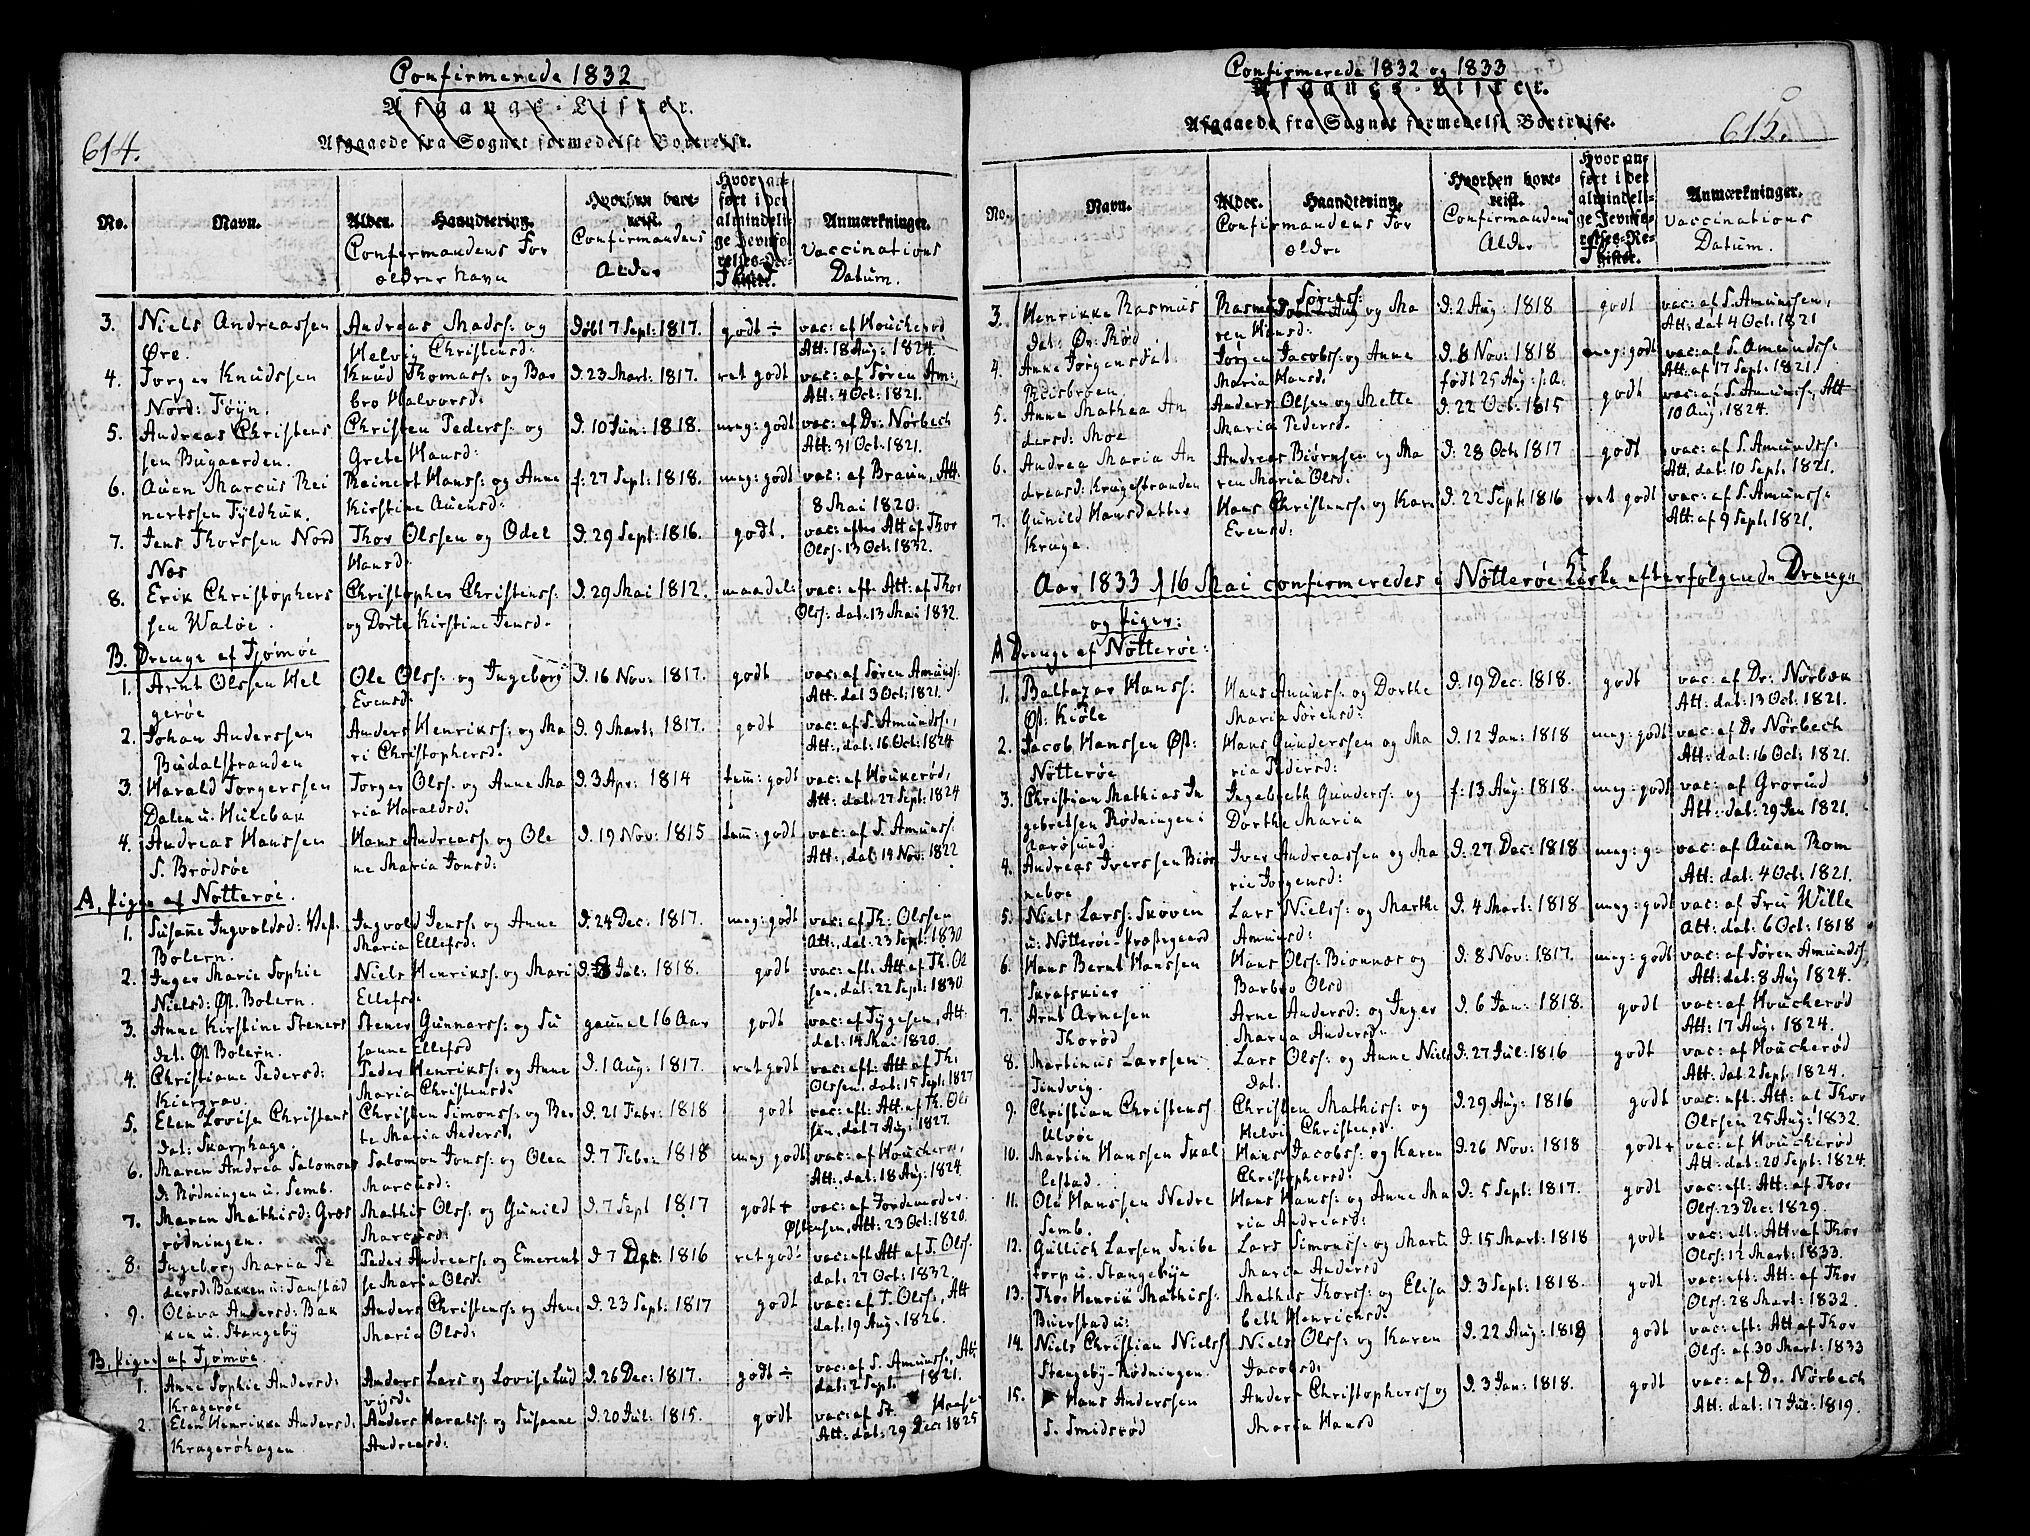 Confirmerede 1832
Afgangs-Lister.
614.
Afgaaede fra Sognet formedelst Bortreise.
No. Navn. Alder. Haandtering. Hvorhen bortreist. Hvor anført i det almindelige Jevnførelses-Register. Anmærkninger.
Confirmandens Forældres Navn
Confirmandens Alder
Vaccinations Datum.
3. Niels Andreassen Andreas Madss: og Døbt 7 Sept: 1817. godt ÷ vac: af Houcherød
Øre. Helvig Christensd: Att: 18 Aug: 1824.
4. Torger Knudssen Knud Thomass: og Bar D. 23 Mart: 1817. ret godt vac: af Søren Am:
Nord: Føyn. bro Halvorsd: Att: 4 Oct: 1821.
5. Andreas Christens Christen Peders: og D. 10 Jun: 1818. meg: godt vac: af Dr: Nørbech
sen Bugaarden. Grete Hansd: Att: 31 Oct: 1821.
6. Auen Marcus Rei Reinert Hans: og Anne f: 27 Sept: 1818. meg: godt vac: af Braun, Att.
nertssen Fyldhuk. Kirstine Auensd: 8 Mai 1820.
7. Jens Thorssen Nord Thor Olssen og Odel D. 29 Sept: 1816. godt. vac: efter Att af Thor
Næs Hansd. Olss: 13 Oct: 1832.
8. Erik Christophers Christopher Christenss: D. 29 Mai 1812. maadel: vac: eft. Att: af Thor
sen Waløe. og Dorte Kirstine Jensd. Olss: dat: 13 Mai 1832.
B. Drenge af Tjømøe
1. Arnt Olssen Hel Ole Olss: og Ingeborg D. 16 Nov: 1817. godt vac: af Søren Amunds:
gerøe Evensd: Att: dat 3 Oct: 1821.
2. Johan Anderssen Anders Henrikss: og Ma D. 9 Mart: 1817. godt vac: af S. Amundss:,
Budalstranden ri Christophersd: Att:, dat: 16 Oct: 1824
3. Harald Torgerssen Torger Olss: og Anne Ma D. 3 Apr: 1814 tem: godt vac: af Houkerød,
Dalen u. Hulebak ria Haraldsd. Att: dat: 27 Sept: 1824
4. Andreas Hanssen Hans Andreass: og Ole D. 19 Nov: 1815 tem: godt vac: af S. Amunss:
S. Brødsøe ne Maria Jonsd: Att:, dat: 14 Nov: 1822
A, Piger af Nøtterøe.
1. Susanne Ingvaldsd: Vest. Ingvold Jenss: og Anne D. 24 Dec: 1817. meg: godt vac: af Th: Olssen
Bolern. Maria Ellefsd: Att:, dat: 23 Sept: 1830
2. Inger Marie Sophie Niels Henrikss: og Mari D. 8 Jul: 1818. godt vac: eft: Att af Th. Ol
Nielsd: Øst. Bolern. Ellefsd: sen, dat: 22 Sept: 1830
3. Anne Kirstine Steners Stener Gunnarss: og Su gaunel 16 Aar godt vac: af Fygesen, Att.
dat. Øst Bolern. sanne Ellefsd dat: 14 Mai 1820.
4. Christiane Pedersd: Peder Henrikss: og Anne D. 1 Aug: 1817. ret godt vac: eft: Att af Th:
Kiergrav. Maria Christensd: Olssen. dat: 15 Sept: 1827
5. Elen Lovise Christens Christen Simonss: og Ber D. 21 Febr: 1818 godt vac: eft: Att: af Th. Ols
dat: Skarphage. te Maria Andersd, sen, dat 7 Aug: 1827.
6. Maren Andrea Salomons Salomon Jonss: og Olea D. 7 Febr: 1818 meg godt vac: af Houcherø,
d: Rødningen u. Semb. Marcusd: Att:, dat: 18 Aug: 1824.
7. Maren Mathisd: Græs Mathis Olss: og Gunild D. 7 Sept 1817 godt + vac: af Jordemoder
rødningen. Marcusd: Østensen, Att: 23 Oct: 1820.
8. Ingeborg Maria Pe Peder Andreass: og Emerent D. 7 Dec: 1816 ret godt vac: eft Att af T. Olss:
dersd: Bakken u: Tanstad se Maria Olsd: dat: 27 Oct: 1832.
9. Oleva Andersd: Bak Anders Christenss: og Anne D. 23 Sept: 1817 godt vac: af T. Olss:, Att
ken u. Stangeby Maria Olsd: dat: 19 Aug: 1826.
B, Piger af Tjømøe
1. Anne Sophie Andersd: Anders Lars og Lovise Lud D. 26 Dec: 1817. godt ÷ vac: af S. Amunss:, Att.
Kragerøe vigsd: dat: 2 Sept 1821.
2. Elen Henrikke Andersd: Anders Haralss: og Susanne D. 20 Jul: 1815. godt vac: af St. Haase
Kragerøhagen Andreasd: Att: dat: 29 Dec: 1825
Confirmerede 1832 og 1833
Afgangs-Lister.
615.
Afgaaede fra Sognet formedelst Bortreise.
No. Navn. Alder. Haandtering. Hvorhen bortreist. Hvor anført i det almindelige Jevnførelses-Register. Anmærkninger.
Confirmandens Forældre
Confirmandens Alder
Vaccinations Datum.
3. Henrikke Rasmus Rasmus Sørens: og Ma D: 2 Aug: 1818 godt vac: af S. Amunssen,
Dat: Ør: Rød ren Hansd: Att: dat 4 Oct: 1821
4. Anne Jørgensdat: Jørgen Jacobss: og Anne D. 8 Nov: 1818 meg: godt vac: af S. Amundss:
Reisbroen. Maria Hansd. født 25 Aug: s. A. Att: af 17 Sept: 1821.
5. Anne Mathea An Anders Olsen og Mette D: 22 Oct: 1815 godt vac: af S. Amunss, Att
dersd: Moe Maria Pedersd. 10 Aug: 1824.
6. Andrea Maria An Andreas Biørnsen og Ma D: 28 Oct: 1817 godt vac: af S. Amundss:
dreasd: Krugestranden ren Maria Olsd: Att, dat: 10 Sept: 1821.
7. Gunild Hansdatter Hans Christenss: og Kari D. 22 Sept: 1816 ret godt vac: af S. Amunss:
Kruge. Evensd: Att: af 9 Sept: 1821.
Aar 1833 d 16 Mai confirmeredes i Nøtterøe Kirke efterfølgende Drenge
og Piger:
A Drenge af Nøtterøe:
1. Baltazar Hanss: Hans Amunss: og Dorthe D: 19 Dec: 1818. godt vac: af Dr: Nørbæk
Øst: Kiøle Maria Sørensd: Att: dat: 13 Oct: 1821.
2. Jacob Hanssen Øst: Hans Gunderssen og Ma D. 12 Jan: 1818 meg: godt vac: af Dr Nørbech
Nøtterøe ria Pedersd: Att: dat: 16 Oct: 1821.
3. Christian Mathias In Ingebreth Gunderss: og f: 13 Aug: 1818. meg: godt vac: af Grorud
gebretsen Rødningen i Dorthe Maria Att: dat: 29 Jan 1821.
Aarøsund
4. Andreas Iverssen Biør Iver Andreassen og Ma D: 27 Dec: 1818 meg: g: vac: af Auen Rom
neboe rie Jørgensd: Att: dat: 4 Oct: 1821.
5. Niels Larss: Skoven Lars Nielss: og Marthe D. 4 Mart: 1818 meg: godt vac: af Frü Wille
u: Nøtterøe-Præstegaard Amunsd: Att: dat: 6 Oct: 1818
6. Hans Bernt Hanssen Hans Olss: Bionnæs og D. 8 Nov: 1817. meg: godt vac: af Søren Amundss,
Skrafskier Barbro Olsd Att: dat: 8 Aug 1824.
7. Arnt Arnesen Arne Andersd: og Inger D. 6 Jan: 1818. godt vac: af Houcherød
Thorød Maria Andersd: Att: 17 Aug: 1824.
8. Martinus Larssen Lars Olss: og Anne Niels D. 27 Jul: 1816 godt vac: af Houcherød
Tindvig. dat. Att: dat. 2 Sept: 1824.
9. Christian Christenss Christen Mathiss: og D. 29 Aug: 1816 godt vac: eft: Att: al Thor
Ulvøe Helvig Christensd. Olssen 25 Aug: 1832.
10. Martin Hanssen Skal Hans Jacobss: og Karen D. 26 Nov: 1818 godt + vac: af Houcherød
lestad. Christophersd: Att: dat: 20 Sept: 1824.
11. Ole Hanssen Nedre Hans Hanss: og Anne Ma D: 5 Sept: 1817. godt vac: eft: Att: af Thor
Semb. ria Andreasd: Olss: 23 Dec: 1829.
12. Gullich Larsen Snibe Lars Simonss: og Marte D. 15 Mart: 1818 godt vac: eft: Att af Thor
torp u. Stangebye Maria Andersd Olss: 12 Mart: 1833.
13. Thor Henrik Mathiss: Mathis Thorss: og Elisa D. 3 Sept: 1818. godt vac: eft: Att: af Thor
Buerstad u: beth Henricksd: Olss: 28 Mart: 1832.
14. Niels Christian Nielss Niels Olss: og Karen D. 22 Aug: 1818 godt vac: eft: Att af Thor
Stangeby-Rødningen. Jacobsd: Olss: af 30 Mart: 1833
15. Hans Anderssen Anders Christopherss og D. 3 Jan: 1818. godt vac: af Dr. Nørbech
S. Smidsrød Maria Hansd Att: dat: 17 Jul: 1819.